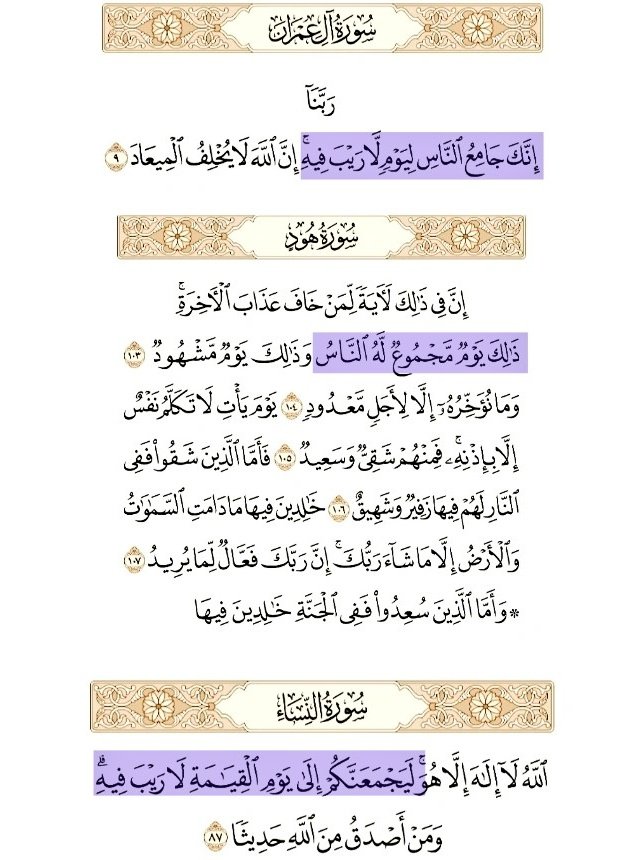 سُورَةُ آلِ عِمۡرَانَ
رَبَّنَآ
إِنَّكَ جَامِعُ ٱلنَّاسِ لِيَوۡمٖ لَّا رَيۡبَ فِيهِۚ إِنَّ ٱللَّهَ لَا يُخۡلِفُ ٱلۡمِيعَادَ ٩
سُورَةُ هُودٍ
إِنَّ فِي ذَٰلِكَ لَأٓيَةٗ لِّمَنۡ خَافَ عَذَابَ ٱلۡأٓخِرَةِۚ
ذَٰلِكَ يَوۡمٞ مَّجۡمُوعٞ لَّهُ ٱلنَّاسُ وَذَٰلِكَ يَوۡمٞ مَّشۡهُودٞ ١٠٣
وَمَا نُؤَخِّرُهُۥٓ إِلَّا لِأَجَلٖ مَّعۡدُودٖ ١٠٤ يَوۡمَ يَأۡتِ لَا تَكَلَّمُ نَفۡسٌ
إِلَّا بِإِذۡنِهِۦۚ فَمِنۡهُمۡ شَقِيّٞ وَسَعِيدٞ ١٠٥ فَأَمَّا ٱلَّذِينَ شَقُواْ فَفِي
ٱلنَّارِ لَهُمۡ فِيهَا زَفِيرٞ وَشَهِيقٌ ١٠٦ خَٰلِدِينَ فِيهَا مَا دَامَتِ ٱلسَّمَٰوَٰتُ
وَٱلۡأَرۡضُ إِلَّا مَا شَآءَ رَبُّكَۚ إِنَّ رَبَّكَ فَعَّالٞ لِّمَا يُرِيدُ ١٠٧
* وَأَمَّا ٱلَّذِينَ سُعِدُواْ فَفِي ٱلۡجَنَّةِ خَٰلِدِينَ فِيهَا
سُورَةُ النِّسَاءِ
ٱللَّهُ لَآ إِلَٰهَ إِلَّا هُوَۚ لَيَجۡمَعَنَّكُمۡ إِلَىٰ يَوۡمِ ٱلۡقِيَٰمَةِ لَا رَيۡبَ فِيهِۗ
وَمَنۡ أَصۡدَقُ مِنَ ٱللَّهِ حَدِيثٗا ٨٧